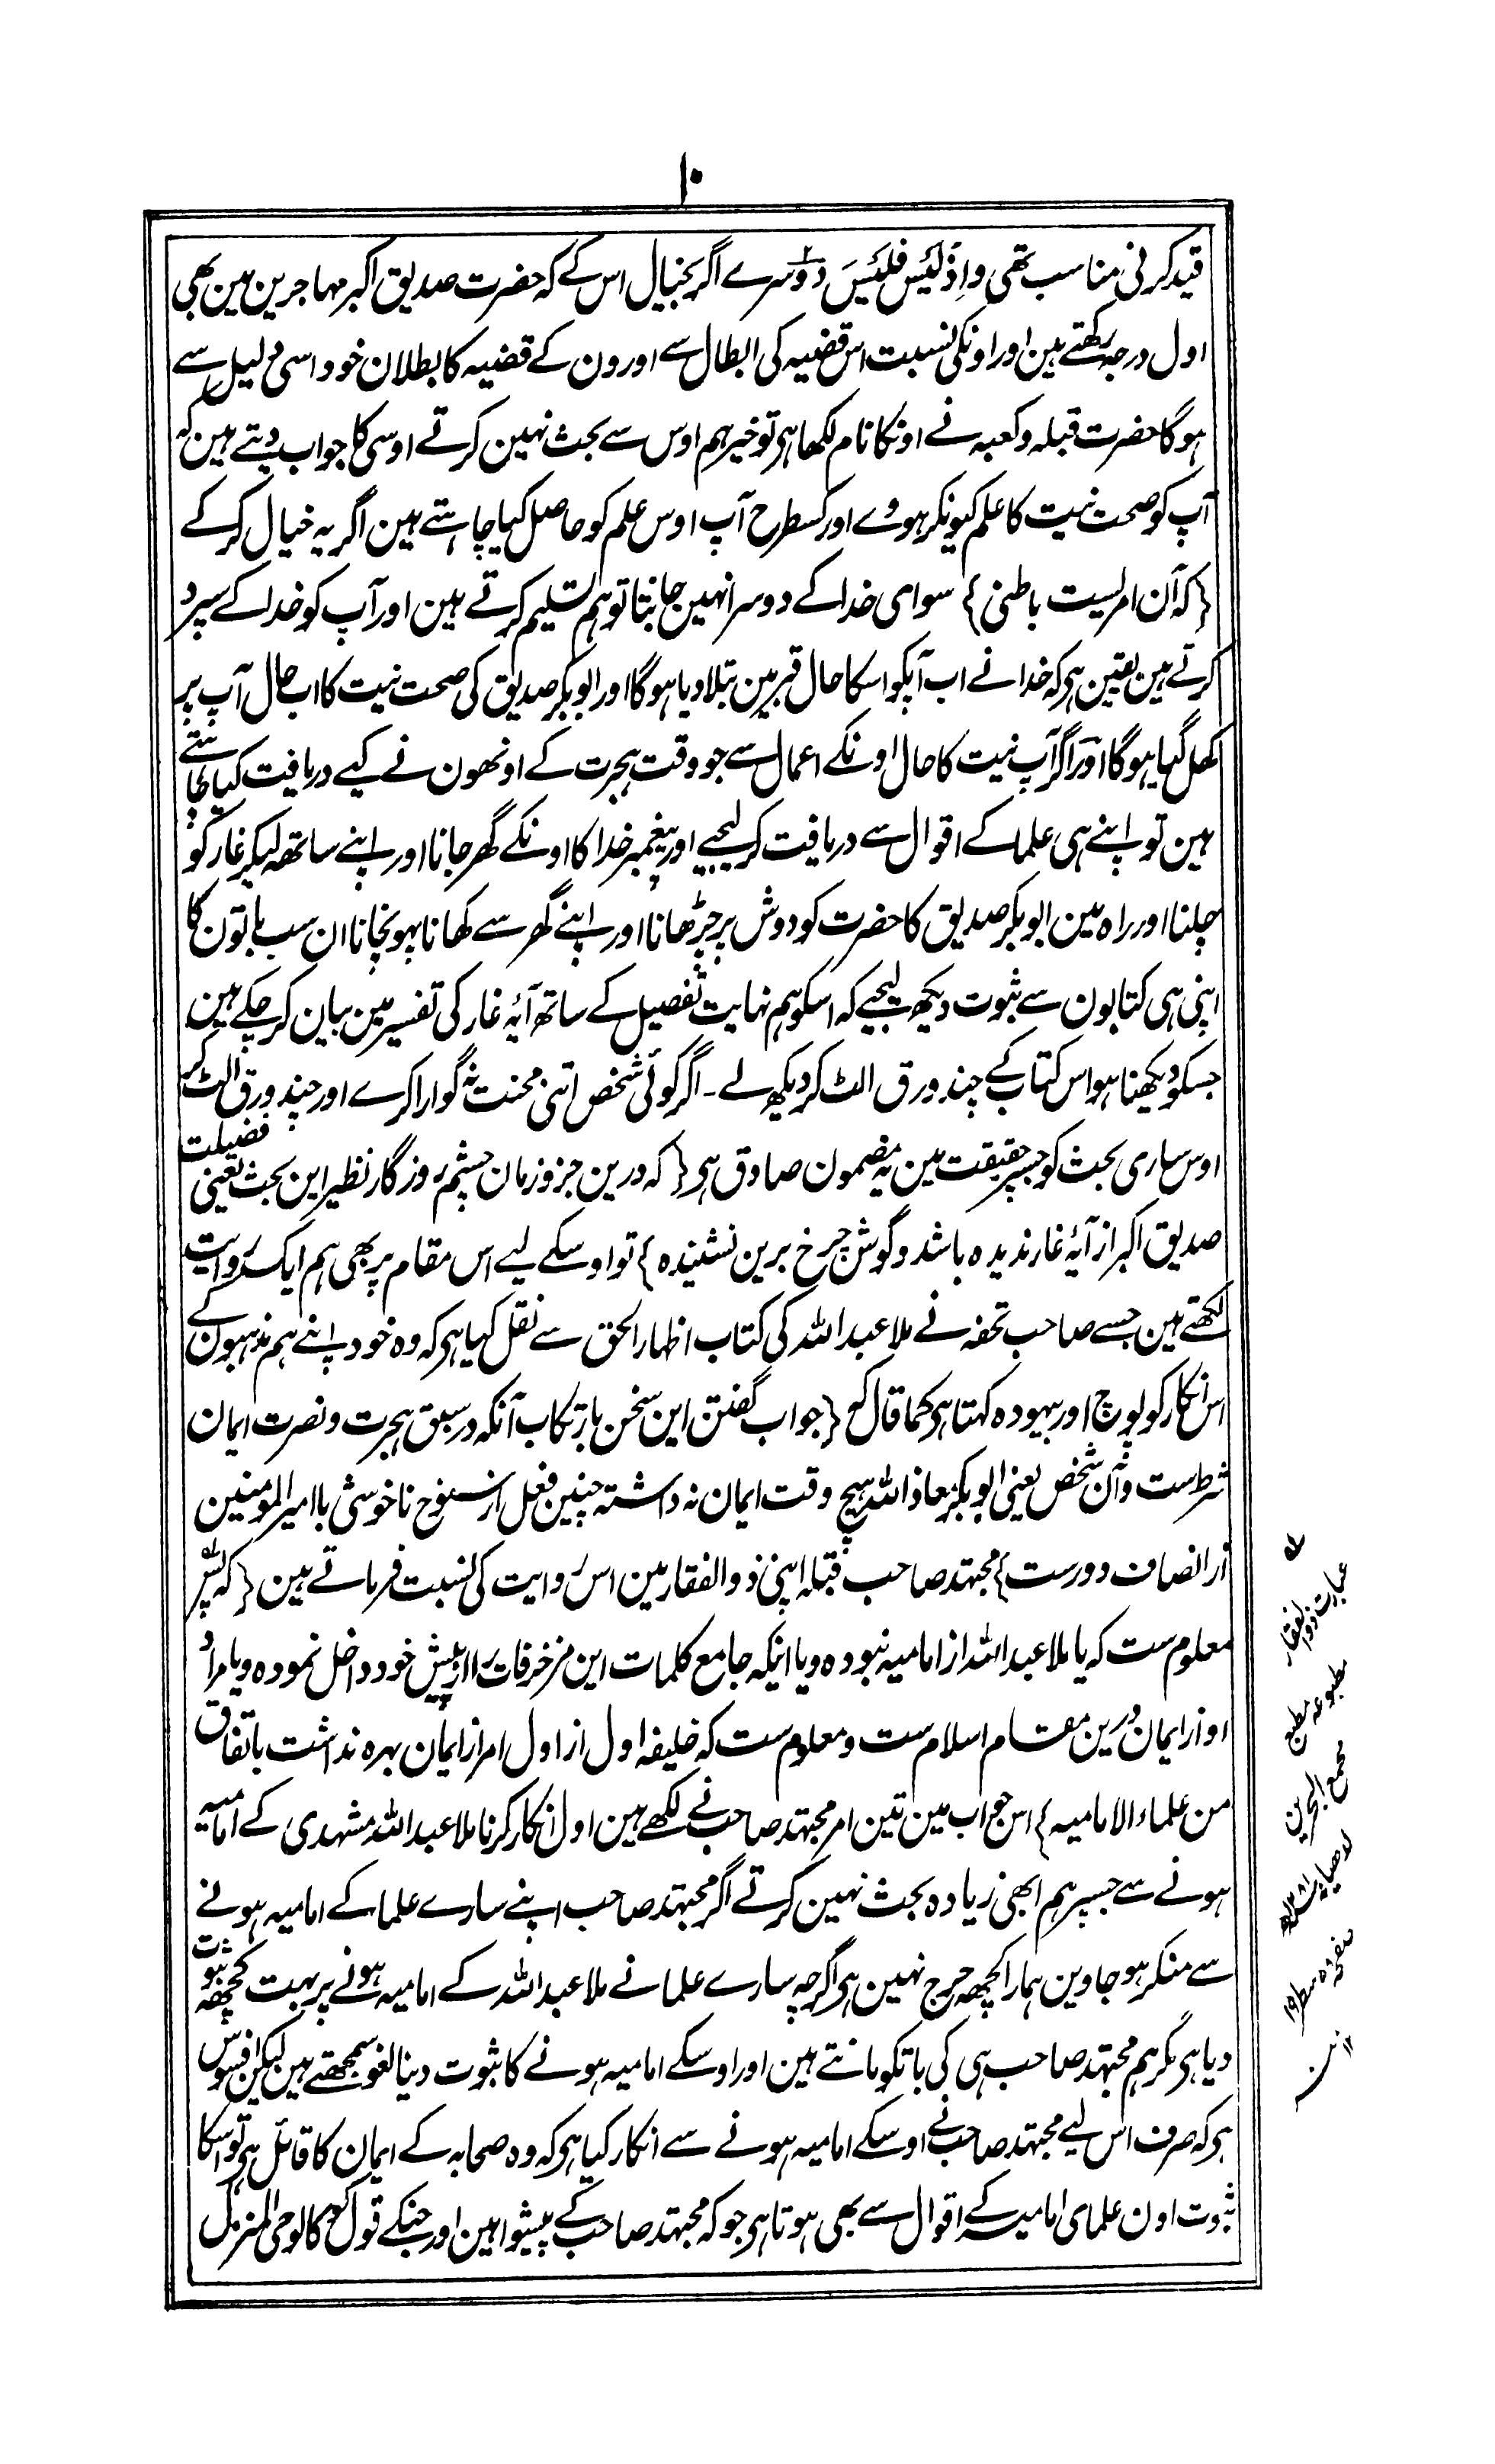 ۱۰
قید کرنی مناسب تھی واِذ لَیْس فلَیْسَ دوسرے اگر بخیال اس کے کہ حضرت صدیق اکبر مہاجرین مین بھی
اول درجہ رکھتے ہین اور اونکی نسبت اس قضیہ کی ابطال سے اورون کے قضیہ کا بطلان خود اسی دلیل سے
ہوگا حضرت قبلہ و کعبہ نے اونکا نام لکھا ہی تو خیر ہم اوس سے بحث نہین کرتے اوسی کا جواب دیتے ہین کہ
آپ کو صحت نیت کا علم کیونکر ہووے اور کسطرح آپ اوس علم کو حاصل کیا چاہتے ہین اگر یہ خیال کر کے
{کہ آن امریست باطنی} سوای خدا کے دوسرا نہین جانتا تو ہم تسلیم کرتے ہین اور آپ کو خدا کے سپرد
کرتے ہین یقین ہی کہ خدا نے اب آپکو اسکا حال قبر مین بتلا دیا ہوگا اور ابو بکر صدیق کی صحت نیت کا اب حال آپ پر
کھل گیا ہوگا اور اگر آپ نیت کا حال اونکے اعمال سے جو وقت ہجرت کے اونھون نے کیے دریافت کیا چاہتے
ہین تو اپنے ہی علما کے اقوال سے دریافت کر لیجیے اور پیغمبر خدا کا اونکے گھر جانا اور اپنے ساتھ لیکر غار کو
چلنا اور راہ مین ابو بکر صدیق کا حضرت کو دوش پر چڑھانا اور اپنے گھر سے کھانا پہونچانا ان سب باتون کا
اپنی ہی کتابون سے ثبوت دیکھ لیجیے کہ اسکو ہم نہایت تفصیل کے ساتھ آیۂ غار کی تفسیر مین بیان کر چکے ہین
جسکو دیکھنا ہو اس کتاب کے چند ورق الٹ کر دیکھ لے۔ اگر کوئی شخص اتنی محنت نہ گوارا کرے اور چند ورق الٹ کر
اوس ساری بحث کو جسپر حقیقت مین یہ مضمون صادق ہی {کہ درین جزو زمان چشم روزگار نظیر این بحث یعنی فضیلت
صدیق اکبر از آیۂ غار ندیدہ باشد و گوش چرخ برین نشنیدہ} تو اوسکے لیے اس مقام پر بھی ہم ایک روایت
لکھتے ہین جسے صاحب تحفہ نے ملا عبد اللہ کی کتاب اظہار الحق سے نقل کیا ہی کہ وہ خود اپنے ہم مذہبون کے
اس انکار کو پوچ اور بیہودہ کہتا ہی کما قال ع {جواب گفتن این سخن بارتکاب آنکہ در سبق ہجرت و نصرت ایمان
شرط ست و آن شخص یعنی ابو بکر معاذ اللہ ہیچ وقت ایمان نہ داشتہ چنین فعل از سنوح ناخوشی با امیر المومنین
از انصاف دورست} مجتہد صاحب قبلہ اپنی ذو الفقار مین اس روایت کی نسبت فرماتے ہین {کہ پس
معلوم ست کہ یا ملا عبد اللہ از امامیہ نبودہ و یا اینکہ جامع کلمات این مزخرفات را از پیش خود داخل نمودہ و یا مراد
او از ایمان درین مقام اسلام ست و معلوم ست کہ خلیفہ اول از اول امر از ایمان بہرہ نداشت باتفاق
من علماء الامامیہ} اس جواب مین تین امر مجتہد صاحب نے لکھے ہین اول انکار کرنا ملا عبد اللہ مشہدی کے امامیہ
ہونے سے جسپر ہم ابھی زیادہ بحث نہین کرتے اگر مجتہد صاحب اپنے سارے علما کے امامیہ ہونے
سے منکر ہو جاوین ہمارا کچھ حرج نہین ہی اگرچہ سارے علما نے ملا عبد اللہ کے امامیہ ہونے پر بہت کچھ ثبوت
دیا ہی مگر ہم مجتہد صاحب ہی کی باتکو مانتے ہین اور اوسکے امامیہ ہونے کا ثبوت دینا لغو سمجھتے ہین لیکن افسوس
ہی کہ صرف اس لیے مجتہد صاحب نے اوسکے امامیہ ہونے سے انکار کیا ہی کہ وہ صحابہ کے ایمان کا قائل ہی تو اسکا
ثبوت اون علمای امامیہ کے اقوال سے بھی ہوتا ہی جو کہ مجتہد صاحب کے پیشوا ہین اور جنکے قول کو کالوحی المنزل
عبارت ذو الفقار
مطبوعہ مطبع
مجمع البحرین
لدھیانہ
صفحہ ۵۱ سطر ۱۵